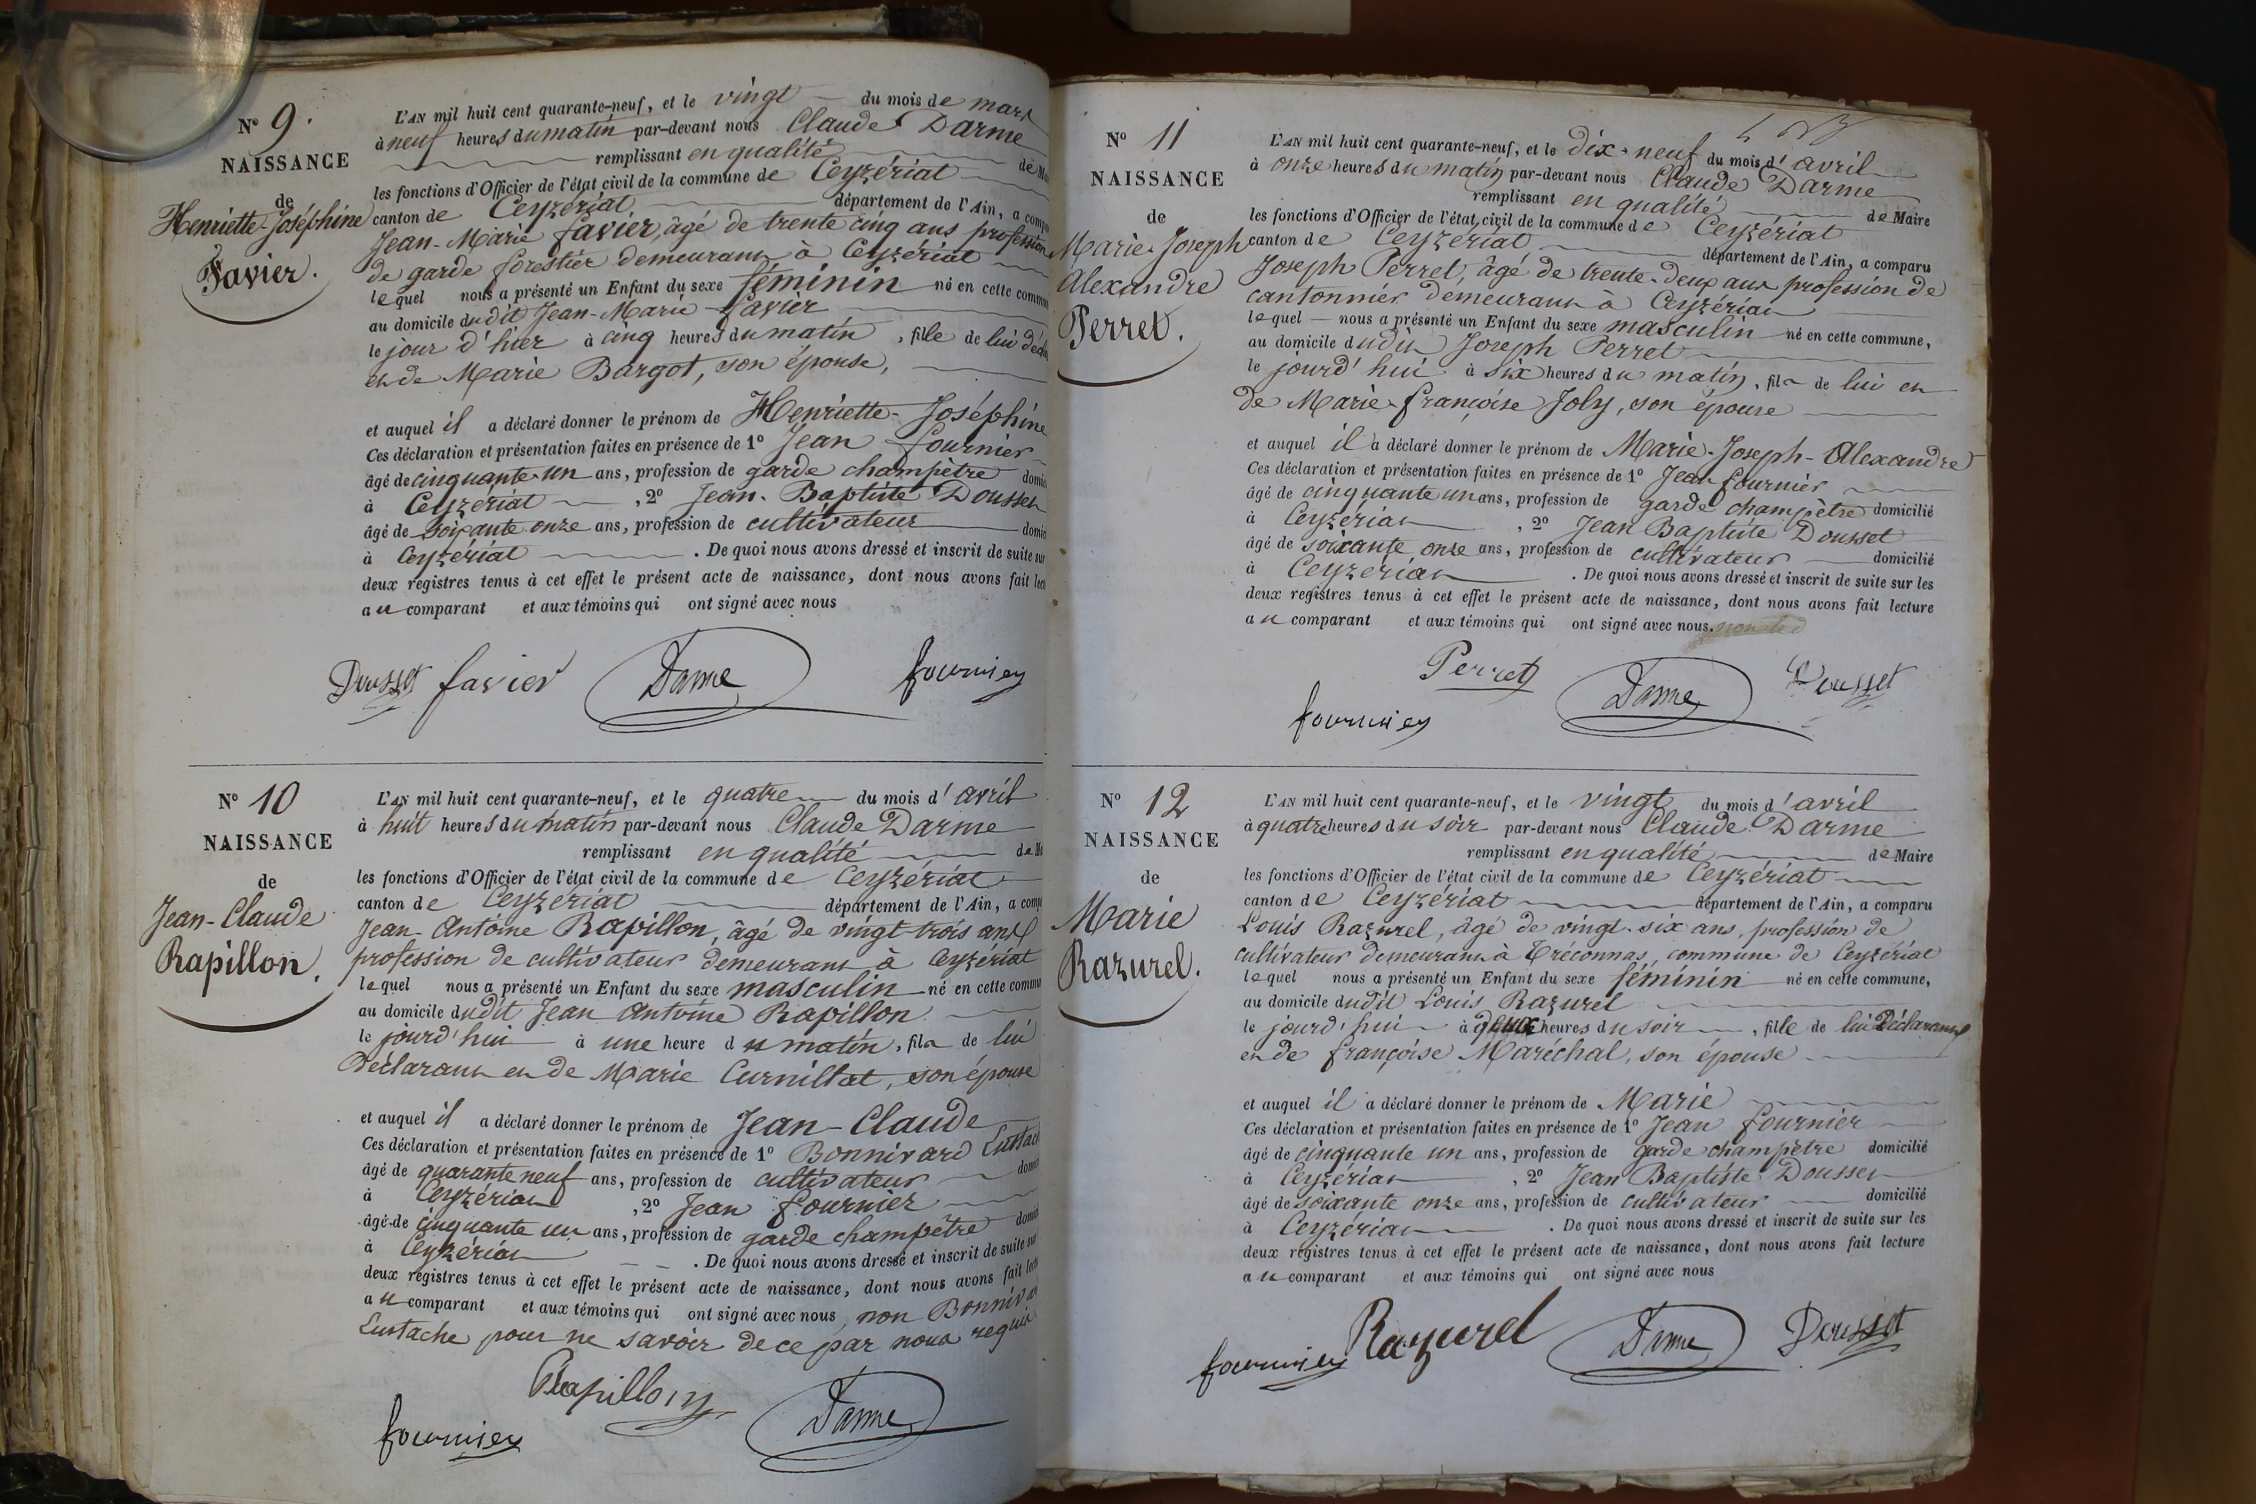 N° 9.
NAISSANCE
de
Henriette-Joséphine
Favier.
L'AN mil huit cent quarante-neuf, et le vingt du mois de mars
à neuf heures du matin par-devant nous Claude Darme
remplissant en qualité de
les fonctions d'Officier de l'état civil de la commune de Ceyzériat
canton de Ceyzériat département de l'Ain, a
Jean-Marie favier, âgé de trente cinq ans profession
de garde forestier demeurant à Ceyzériat
lequel nous a présenté un Enfant du sexe féminin né en cette
au domicile dudit Jean-Marie favier
le jour d'hier à cinq heures du matin, fille de lui
et de Marie Bargot, son épouse,
et auquel il a déclaré donner le prénom de Henriette-Joséphine
Ces déclaration et présentation faites en présence de 1° Jean fournier
âgé de cinquante-un ans, profession de garde champêtre
à Ceyzériat, 2° Jean-Baptiste Dousset
âgé de soixante onze ans, profession de cultivateur
à Ceyzériat. De quoi nous avons dressé et inscrit de suite sur
deux registres tenus à cet effet le présent acte de naissance, dont nous avons fait
au comparant et aux témoins qui ont signé avec nous
Dousset favier Darme fournier
N° 10
NAISSANCE
de
Jean-Claude
Rapillon.
L'AN mil huit cent quarante-neuf, et le quatre du mois d'avril
à huit heures du matin par-devant nous Claude Darme
remplissant en qualité de
les fonctions d'Officier de l'état civil de la commune de Ceyzériat
canton de Ceyzériat département de l'Ain, a
Jean-Antoine Rapillon, âgé de vingt-trois ans
profession de cultivateur demeurant à Ceyzériat
lequel nous a présenté un Enfant du sexe masculin né en cette
au domicile dudit Jean Antoine Rapillon
le jourd'hui à une heure du matin, fils de lui
Déclarant et de Marie Curnillat, son épouse
et auquel il a déclaré donner le prénom de Jean-Claude
Ces déclaration et présentation faites en présence de 1° Bonnivard
âgé de quarante neuf ans, profession de cultivateur
à Ceyzériat, 2° Jean fournier
âgé de cinquante un ans, profession de garde champêtre
à Ceyzériat. De quoi nous avons dressé et inscrit de suite
deux registres tenus à cet effet le présent acte de naissance, dont nous avons fait
au comparant et aux témoins qui ont signé avec nous, non
Eustache pour ne savoir de ce par nous requis
Rapillon
fournier Darme
N° 11
NAISSANCE
de
Marie-Joseph
Alexandre
Perret.
L'AN mil huit cent quarante-neuf, et le dix-neuf du mois d'avril
à onze heures du matin par-devant nous Claude Darme
remplissant en qualité de Maire
les fonctions d'Officier de l'état civil de la commune de Ceyzériat
canton de Ceyzériat département de l'Ain, a comparu
Joseph Perret, âgé de trente-deux ans profession de
cantonnier demeurant à Ceyzériat
lequel nous a présenté un Enfant du sexe masculin né en cette commune,
au domicile dudit Joseph Perret
le jourd'hui à six heures du matin, fils de lui et
de Marie-françoise Joly, son épouse
et auquel il a déclaré donner le prénom de Marie-Joseph-Alexandre
Ces déclaration et présentation faites en présence de 1° Jean fournier
âgé de cinquante un ans, profession de garde champêtre domicilié
à Ceyzériat, 2° Jean Baptiste Dousset
âgé de soixante onze ans, profession de cultivateur domicilié
à Ceyzériat. De quoi nous avons dressé et inscrit de suite sur les
deux registres tenus à cet effet le présent acte de naissance, dont nous avons fait lecture
au comparant et aux témoins qui ont signé avec nous.
Perret Darme Dousset
fournier
N° 12
NAISSANCE
de
Marie
Razurel.
L'AN mil huit cent quarante-neuf, et le vingt du mois d'avril
à quatre heures du soir par-devant nous Claude Darme
remplissant en qualité de Maire
les fonctions d'Officier de l'état civil de la commune de Ceyzériat
canton de Ceyzériat département de l'Ain, a comparu
Louis Razurel, âgé de vingt-six ans, profession de
cultivateur demeurant à Tréconnas, commune de Ceyzériat
lequel nous a présenté un Enfant du sexe féminin né en cette commune,
au domicile dudit Louis Razurel
le jourd'hui à deux heures du soir, fille de lui Déclarant
et de françoise Maréchal, son épouse
et auquel il a déclaré donner le prénom de Marie
Ces déclaration et présentation faites en présence de 1° Jean fournier
âgé de cinquante un ans, profession de garde champêtre domicilié
à Ceyzériat, 2° Jean Baptiste Dousset
âgé de soixante onze ans, profession de cultivateur domicilié
à Ceyzériat. De quoi nous avons dressé et inscrit de suite sur les
deux registres tenus à cet effet le présent acte de naissance, dont nous avons fait lecture
au comparant et aux témoins qui ont signé avec nous
fournier Razurel Darme Dousset